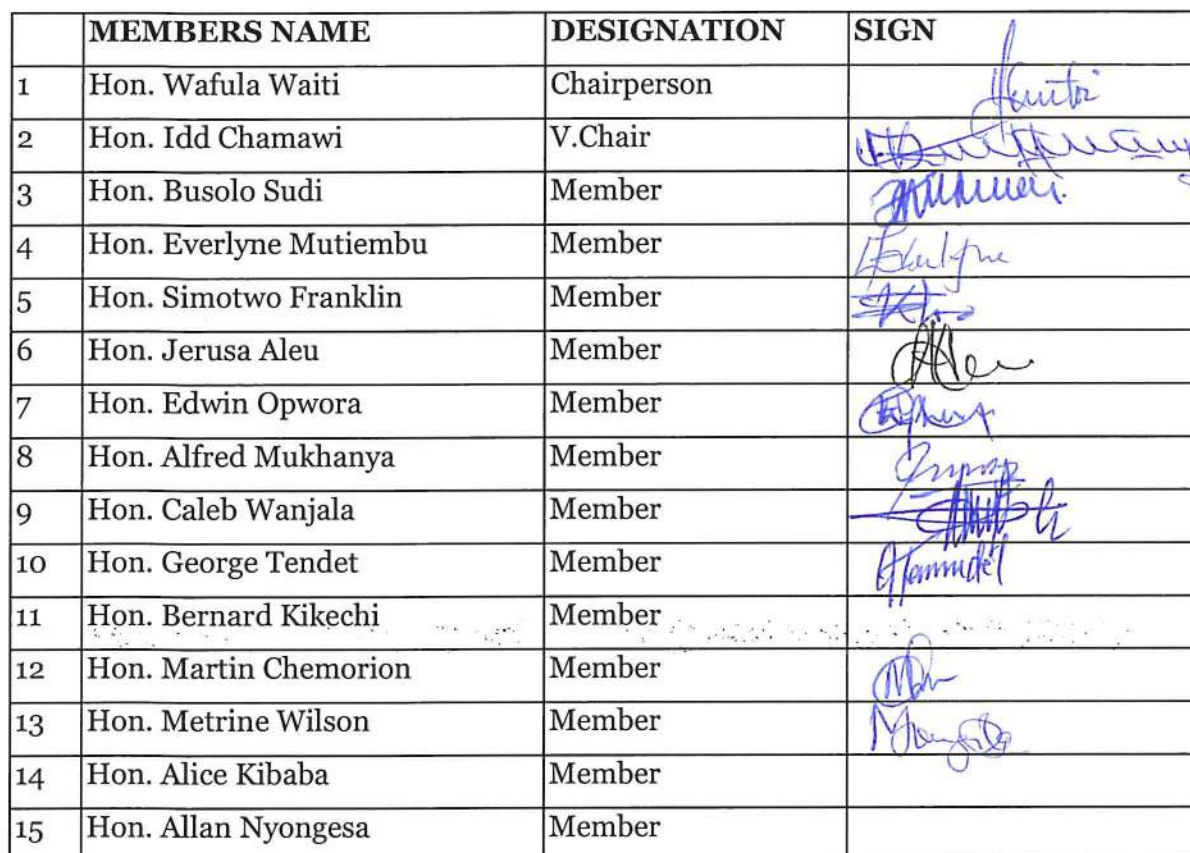 MEMBERS NAME DESIGNATION SIGN
1 Hon. Wafula Waiti Chairperson
2 Hon. Idd Chamawi V.Chair
3 Hon. Busolo Sudi Member
4 Hon. Everlyne Mutiembu Member
5 Hon. Simotwo Franklin Member
6 Hon. Jerusa Aleu Member
7 Hon. Edwin Opwora Member
8 Hon. Alfred Mukhanya Member
9 Hon. Caleb Wanjala Member
10 Hon. George Tendet Member
11 Hon. Bernard Kikechi Member
12 Hon. Martin Chemorion Member
13 Hon. Metrine Wilson Member
14 Hon. Alice Kibaba Member
15 Hon. Allan Nyongesa Member